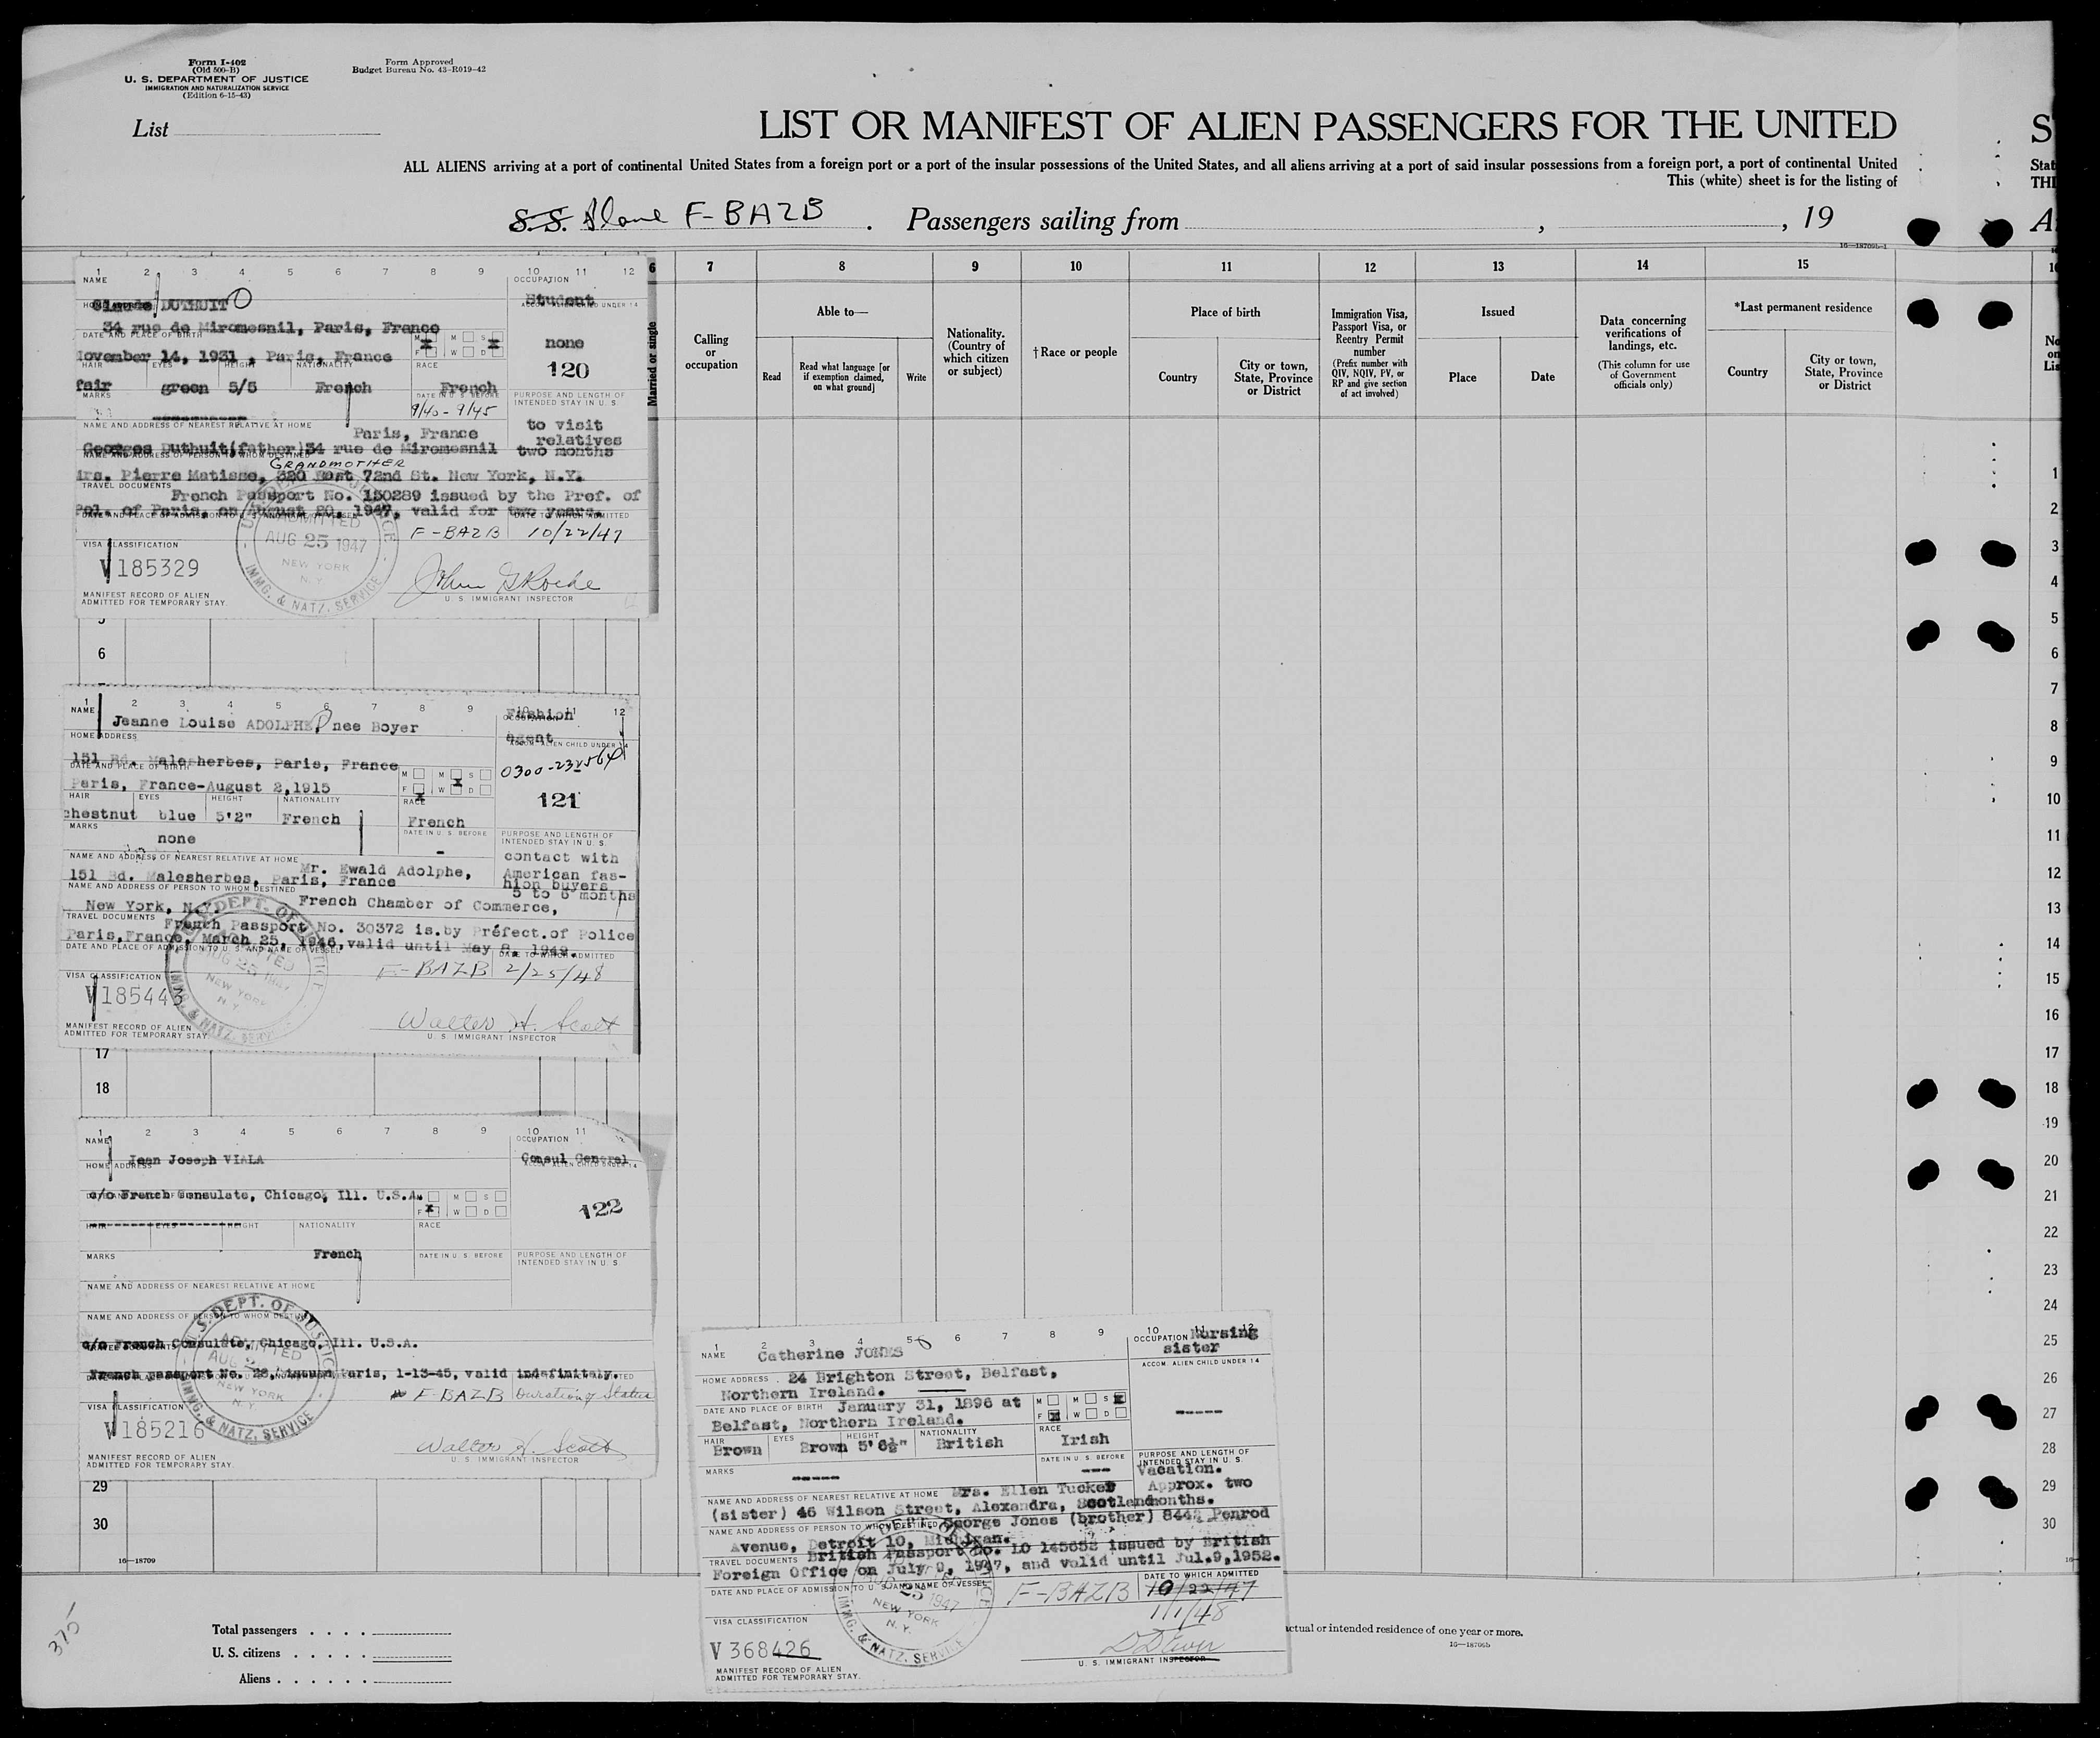 Form I-402
(Old 500-B)
U. S. DEPARTMENT OF JUSTICE
IMMIGRATION AND NATURALIZATION SERVICE
(Edition 6-15-43)
Form Approved
Budget Bureau No. 43-R019-42
List
LIST OR MANIFEST OF ALIEN PASSENGERS FOR THE UNITED
ALL ALIENS arriving at a port of continental United States from a foreign port or a port of the insular possessions of the United States, and all aliens arriving at a port of said insular possessions from a foreign port, a port of continental United
This (white) sheet is for the listing of
S.S. Plane F-BAZB. Passengers sailing from , , 19
16—18709b-1
S
Stat
THI
A
6 7 8 9 10 11 12 13 14 15
Married or single
Calling or occupation
Able to—
Read
Read what language [or if exemption claimed, on what ground]
Write
Nationality. (Country of which citizen or subject)
†Race or people
Place of birth
Country
City or town, State, Province or District
Immigration Visa, Passport Visa, or Reentry Permit number
(Prefix number with QIV, NQIV, PV, or RP and give section of act involved)
Issued
Place
Date
Data concerning verifications of landings, etc.
(This column for use of Government officials only)
*Last permanent residence
Country
City or town, State, Province or District
No
on
Lis
1 2 3 4 5 6 7 8 9 10 11 12
NAME
Claude DUTHUIT
OCCUPATION
Student
34 rue de Miromesnil, Paris, France
DATE AND PLACE OF BIRTH
November 14, 1931 , Paris, France
M X M S X
F W D
none
120
HAIR EYES HEIGHT NATIONALITY RACE
fair green 5/5 French French
MARKS
DATE IN U. S. BEFORE
9/40-9/45
PURPOSE AND LENGTH OF INTENDED STAY IN U. S.
to visit
relatives
two months
NAME AND ADDRESS OF NEAREST RELATIVE AT HOME
Paris, France
Georges Duthuit(father)34 rue de Miromesnil
NAME AND ADDRESS OF PERSON TO WHOM DESTINED
GRANDMOTHER
Mrs. Pierre Matisse, 320 East 72nd St. New York, N.Y.
TRAVEL DOCUMENTS
French Passport No. 150289 issued by the Pref. of
Pol. of Paris, on August 20, 1947, valid for two years.
DATE TO WHICH ADMITTED
F-BAZB 10/22/47
ADMITTED
AUG 25 1947
NEW YORK
N.Y.
IMMG. & NATZ. SERVICE
VISA CLASSIFICATION
V185329
John G Roche
U. S. IMMIGRANT INSPECTOR
MANIFEST RECORD OF ALIEN
ADMITTED FOR TEMPORARY STAY.
5
6
1 2 3 4 5 6 7 8 9 10 11 12
NAME
Jeanne Louise ADOLPHE, nee Boyer
Fashion
Agent
HOME ADDRESS
ACCOM. ALIEN CHILD UNDER 14
151 Bd. Malesherbes, Paris, France
DATE AND PLACE OF BIRTH
Paris, France-August 2,1915
M M X S
F X W D
121
HAIR EYES HEIGHT NATIONALITY RACE
chestnut blue 5'2" French French
MARKS
none
DATE IN U. S. BEFORE
-
PURPOSE AND LENGTH OF INTENDED STAY IN U. S.
contact with
American fas-
hion buyers
5 to 6 months
NAME AND ADDRESS OF NEAREST RELATIVE AT HOME
Mr. Ewald Adolphe,
151 Bd. Malesherbes, Paris, France
NAME AND ADDRESS OF PERSON TO WHOM DESTINED
French Chamber of Commerce,
New York, N.Y.
TRAVEL DOCUMENTS
French Passport No. 30372 is.by Préfect.of Police
Paris,France, March 25, 1946,valid until May 8, 1948.
DATE AND PLACE OF ADMISSION TO U. S. AND NAME OF VESSEL
DATE TO WHICH ADMITTED
F-BAZB 2/25/48
VISA CLASSIFICATION
V185443
Walter H. Scott
U. S. IMMIGRANT INSPECTOR
MANIFEST RECORD OF ALIEN
ADMITTED FOR TEMPORARY STAY.
17
18
1 2 3 4 5 6 7 8 9 10 11 12
NAME
Jean Joseph VIALA
OCCUPATION
Consul General
HOME ADDRESS
c/o French Consulate, Chicago, Ill. U.S.A.
M M S
F X W D
122
HAIR EYES HEIGHT NATIONALITY RACE
French
MARKS
DATE IN U. S. BEFORE
PURPOSE AND LENGTH OF INTENDED STAY IN U. S.
NAME AND ADDRESS OF NEAREST RELATIVE AT HOME
NAME AND ADDRESS OF PERSON TO WHOM DESTINED
c/o French Consulate, Chicago, Ill. U.S.A.
French passport No. 28, issued Paris, 1-13-45, valid indefinitely.
F-BAZB Duration of Status
U.S. DEPT. OF JUSTICE
ADMITTED
NEW YORK
N.Y.
IMMG. & NATZ. SERVICE
VISA CLASSIFICATION
V185216
Walter H. Scott
U. S. IMMIGRANT INSPECTOR
MANIFEST RECORD OF ALIEN
ADMITTED FOR TEMPORARY STAY.
29
30
16—18709
1 2 3 4 5 6 7 8 9 10 11 12
NAME
Catherine JONES
OCCUPATION Nursing
sister
ACCOM. ALIEN CHILD UNDER 14
HOME ADDRESS
24 Brighton Street, Belfast,
Northern Ireland.
DATE AND PLACE OF BIRTH January 31, 1896 at
Belfast, Northern Ireland.
M M S X
F X W D
-----
HAIR EYES HEIGHT NATIONALITY RACE
Brown Brown 5'6½" British Irish
MARKS
-----
DATE IN U. S. BEFORE
---
PURPOSE AND LENGTH OF INTENDED STAY IN U. S.
Vacation.
Approx. two
months.
NAME AND ADDRESS OF NEAREST RELATIVE AT HOME Mrs. Ellen Tucker
(sister) 46 Wilson Street, Alexandra, Scotland
NAME AND ADDRESS OF PERSON TO WHOM DESTINED George Jones (brother) 8444 Penrod
Avenue, Detroit 10, Michigan.
TRAVEL DOCUMENTS British Passport No. LO 145652 issued by British
Foreign Office on July 9, 1947, and valid until Jul.9,1952.
DATE AND PLACE OF ADMISSION TO U. S. AND NAME OF VESSEL
DATE TO WHICH ADMITTED
F-BAZB 10/22/47
1/1/48
25 1947
NEW YORK
N.Y.
IMMG. & NATZ. SERVICE
VISA CLASSIFICATION
V 368426
U. S. IMMIGRANT INSPECTOR
MANIFEST RECORD OF ALIEN
ADMITTED FOR TEMPORARY STAY.
1
2
3
4
5
6
7
8
9
10
11
12
13
14
15
16
17
18
19
20
21
22
23
24
25
26
27
28
29
30
375
Total passengers . . . .
U. S. citizens . . . . .
Aliens . . . . . .
actual or intended residence of one year or more.
16—18709b